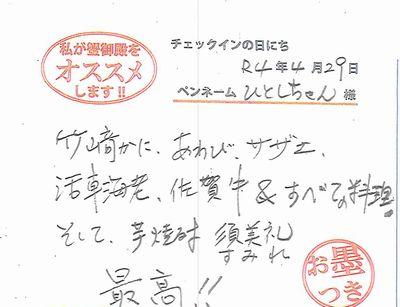 私が蟹御殿を
オススメ
します!!
チェックインの日にち
R4年4月29日
ペンネーム ひとしちゃん 様
竹崎かに、あわび、サザエ、
活車海老、佐賀牛&すべての料理
そして、芋焼酎 須美礼
すみれ
最高!!
お墨つき